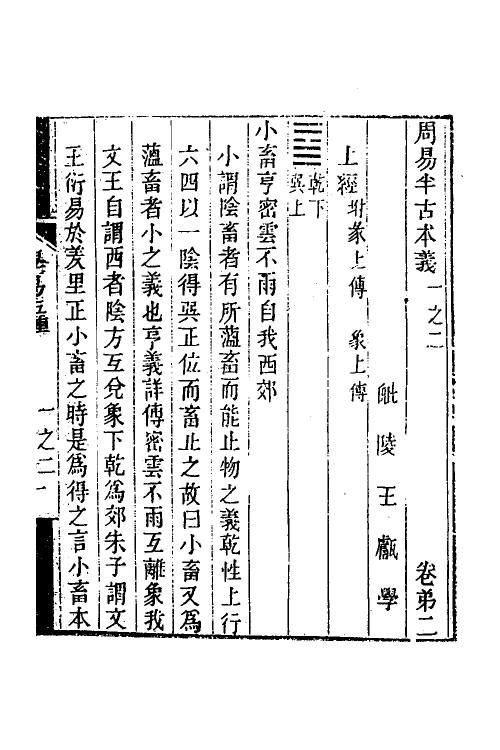 周易半古本義一之二 卷弟二
毗陵王甗學
上經 坿彖上傳 象上傳
乾下
巽上
小畜亨密雲不雨自我西郊
小謂陰畜者有所薀畜而能止物之義乾性上行
六四以一陰得巽正位而畜止之故曰小畜又爲
薀畜者小之義也亨義詳傳密雲不雨互離象我
文王自謂西者陰方互兌象下乾爲郊朱子謂文
王衍易於羑里正小畜之時是爲得之言小畜本
易五種
一之二 一